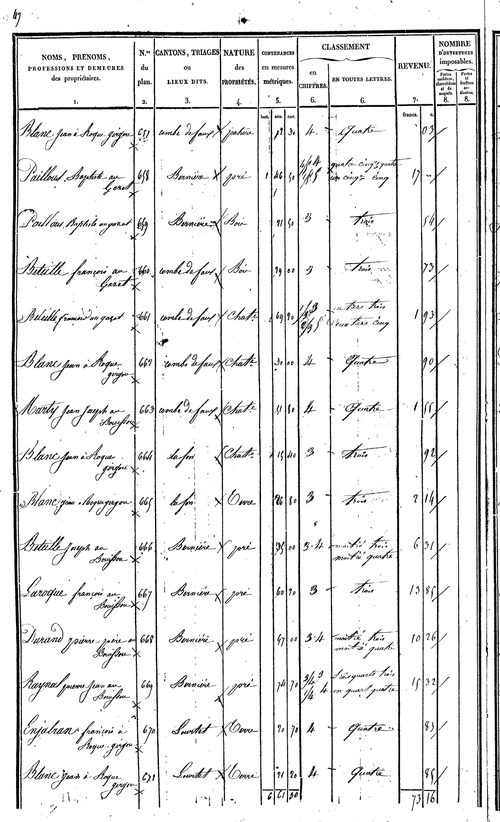 117
NOMS, PRENOMS, PROFESSIONS ET DEMEURES des propriétaires. N.os du plan. CANTONS, TRIAGES ou LIEUX DITS. NATURE des PROPRIÉTÉS. CONTENANCES EN MESURES métriques. CLASSEMENT en CHIFFRES. EN TOUTES LETTRES. REVENU. NOMBRE D'OUVERTURES imposables.
1. 2. 3. 4. 5. 6. 6. 7. 8. 8.
francs. c.
Blanc Jean à Roque 657 combe de faux pature 12 30 4 Quatre 03
Paillous Baptiste au Garet 658 Bernière pré 1 46 50 17
Paillous Baptiste au garet 659 Bernière Bois 21 50 3 trois 54
Béteille françois au Garet 660 combe de faux Bois 29 00 3 trois 73
Béteille francois au garet 661 combe de faux Chat.e 69 20 1/3 3 2/3 5 un tiers trois deux tiers cinq 1 93
Blanc Jean à Roque 662 combe de faux Chat.e 30 00 4 Quatre 90
Marty Jean Joseph au Bouisson 663 combe de faux Chat.e 51 80 4 Quatre 1 55
Blanc Jean à Roque 664 la fon Chat.e 15 40 3 trois 92
Blanc Jean à Roque 665 la fon Terre 26 80 3 trois 2 14
Béteille Joseph au Bouisson 666 Bernière pré 35 00 3-4 moitié trois moitié quatre 6 31
Laroque françois au Bouisson 667 Bernière pré 60 20 3 trois 13 85
Durand pierre au Bouisson 668 Bernière pré 57 00 3-4 moitié trois moitié quatre 10 26
Raynal pierre Jean au Bouisson 669 Bernière pré 74 70 3/4 3 1/4 4 trois quarts trois un quart quatre 15 32
Enjalran françois à Roque 670 Terre 20 70 4 Quatre 83
Blanc Jean à Roque 671 Terre 21 20 4 Quatre 85
6 61 30 73 16